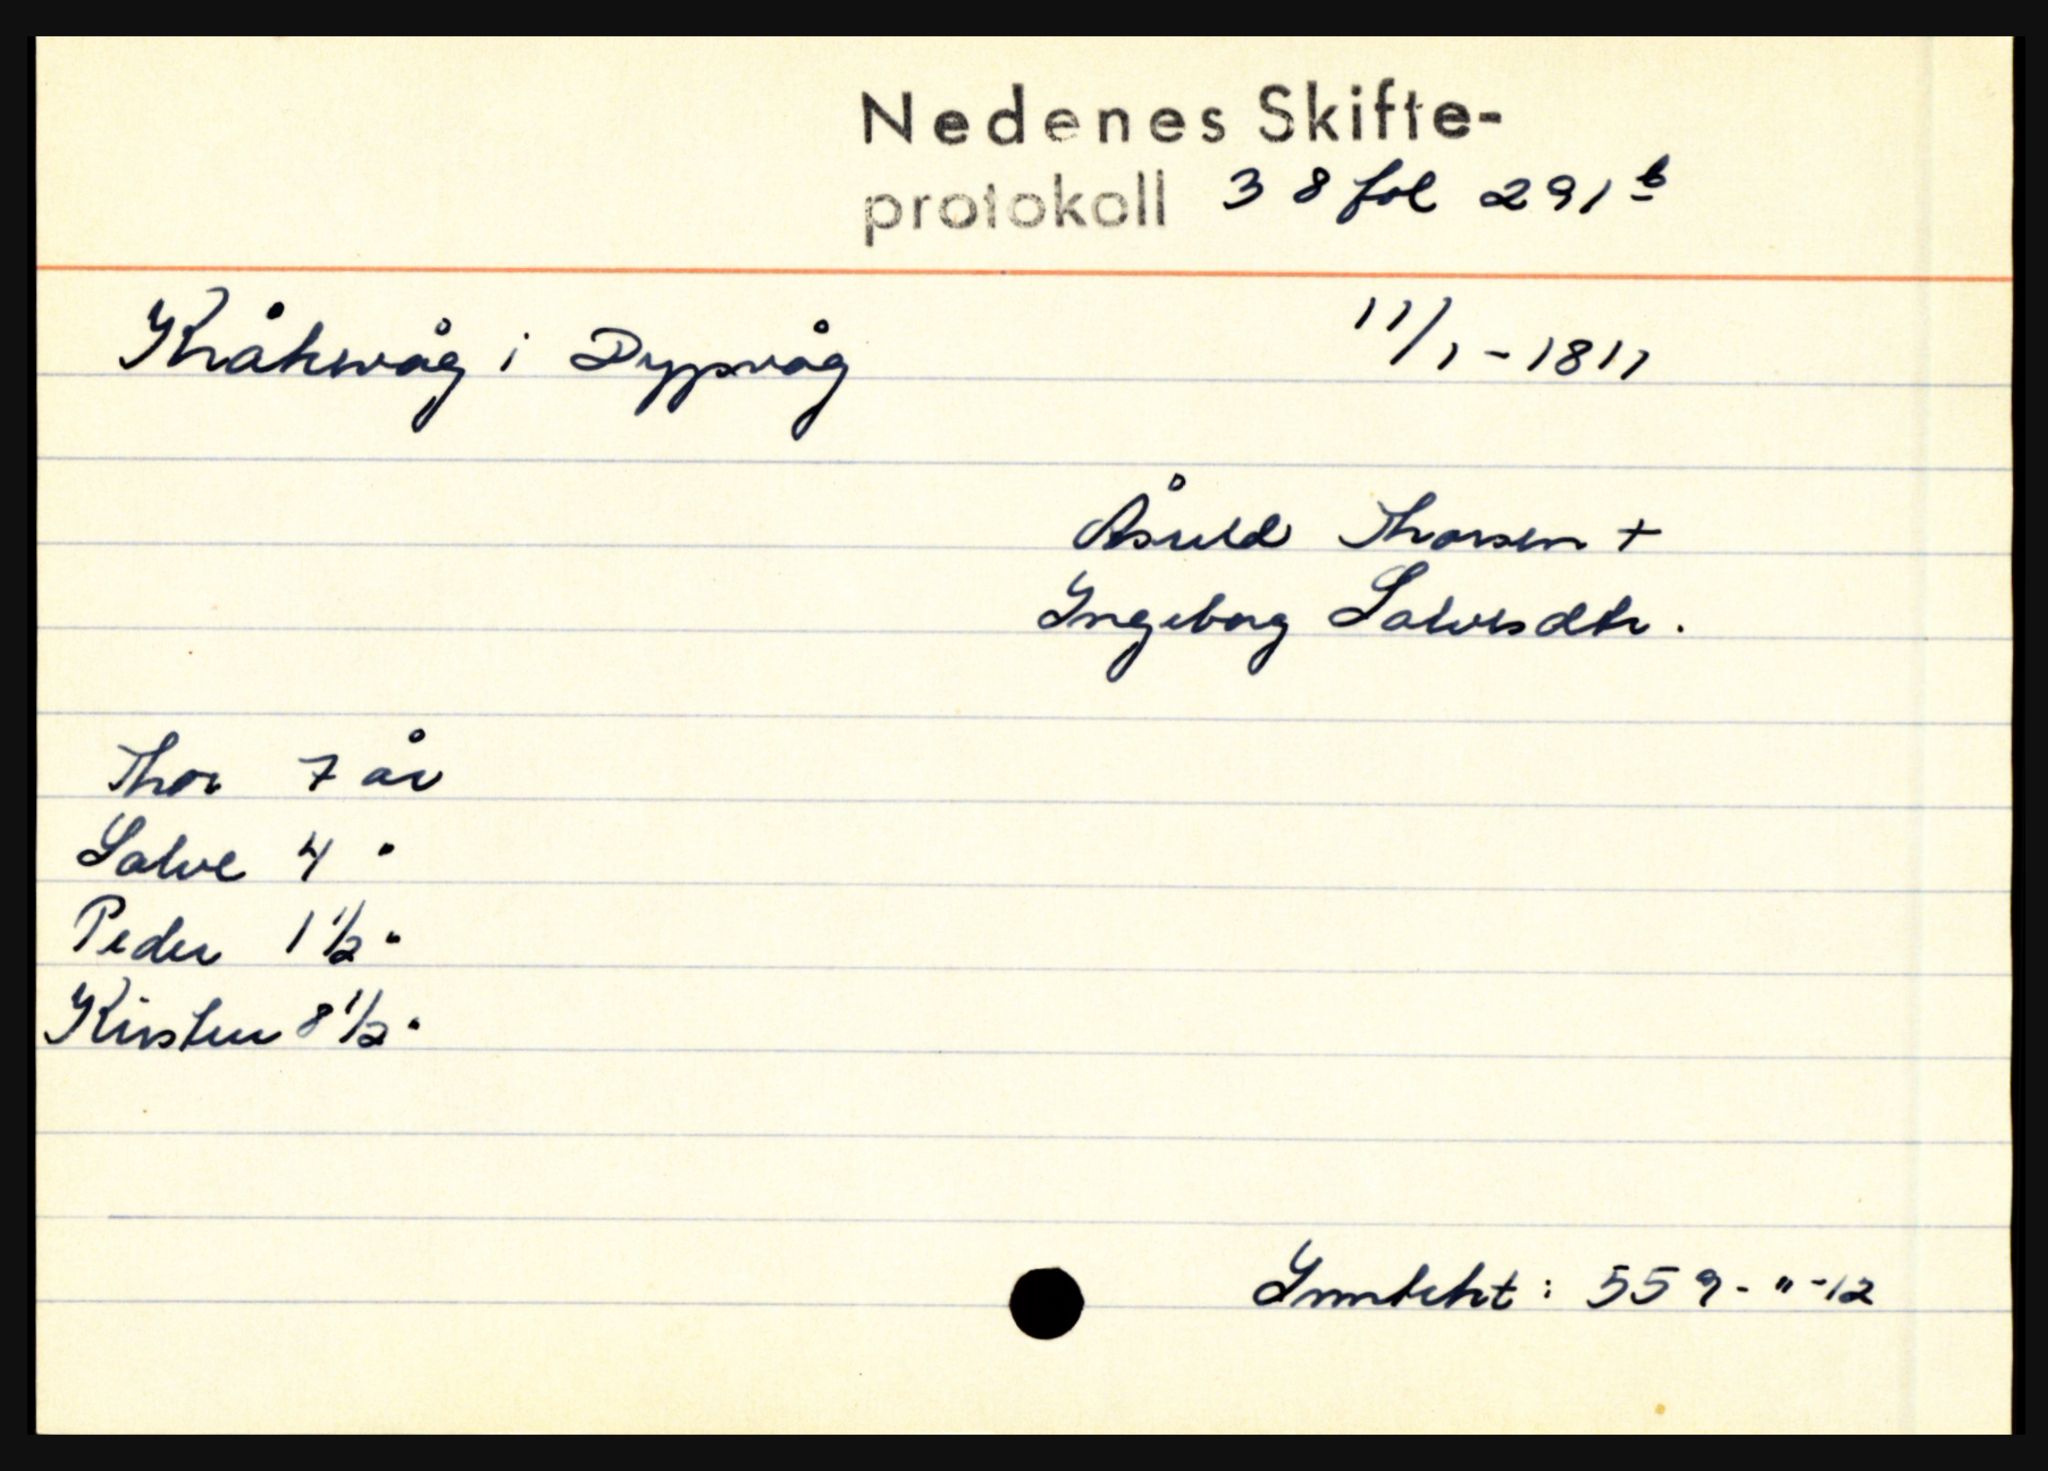 Nedenes Skifte-
protokoll 38 fol 291 b
Kråkevåg i Dypvåg 11/1-1811
Åsuld Thorsen +
Ingeborg Salvesdtr.
Thor 7 år
Salve 4 "
Peder 1 1/2 "
Kirsten 8 1/2 "
Inntekt: 559-"-12